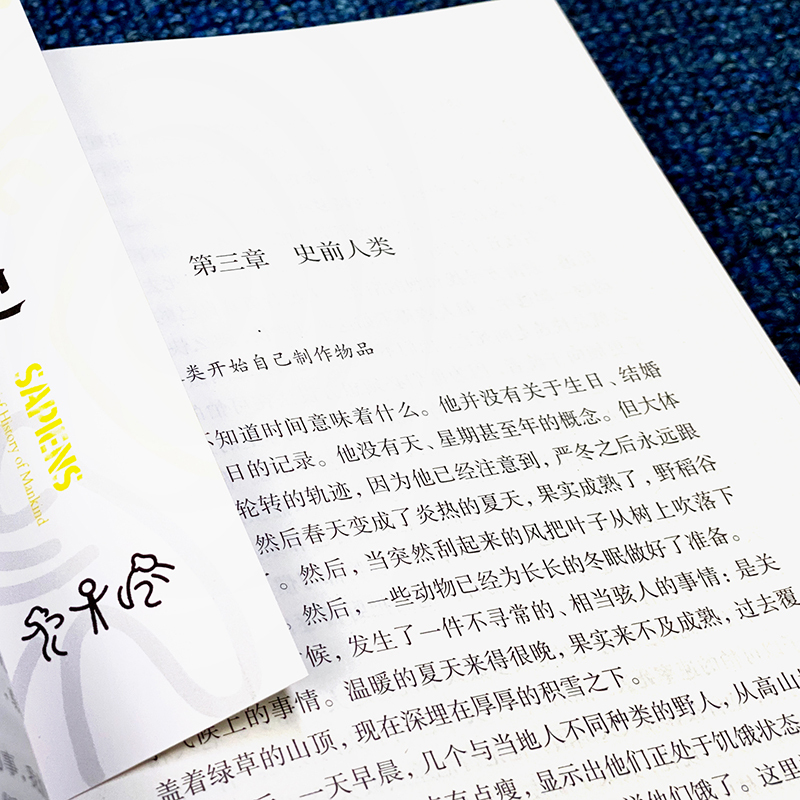 SAPIENS
History of Mankind
第三章 史前人类
类开始自己制作物品
知道时间意味着什么。他并没有关于生日、结婚
日的记录。他没有天、星期甚至年的概念。但大体
轮转的轨迹，因为他已经注意到，严冬之后永远跟
然后春天变成了炎热的夏天，果实成熟了，野稻谷
。然后，当突然刮起来的风把叶子从树上吹落下
然后，一些动物已经为长长的冬眠做好了准备。
候，发生了一件不寻常的、相当骇人的事情；是关
气候上的事情。温暖的夏天来得很晚，果实来不及成熟，过去覆
盖着绿草的山顶，现在深埋在厚厚的积雪之下。
一天早晨，几个与当地人不同种类的野人，从高山
有点瘦，显示出他们正处于饥饿状态
他们饿了。这里